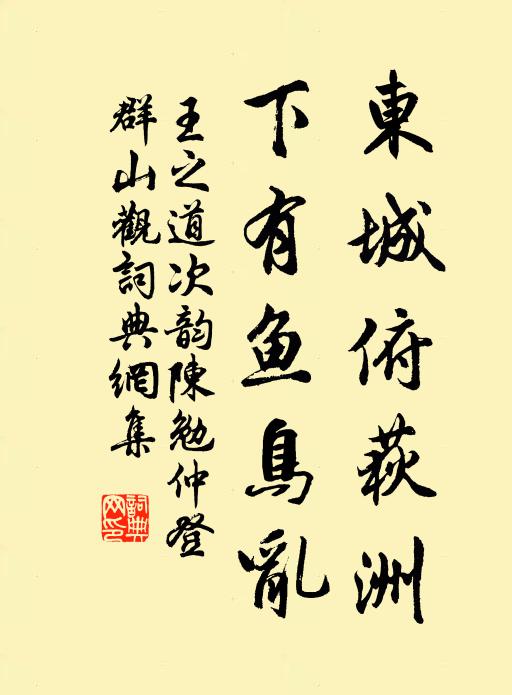 東城俯荻洲
下有鱼鳥亂
王之道次韵陳勉仲登
群山觀詞典網集
詞典
网印